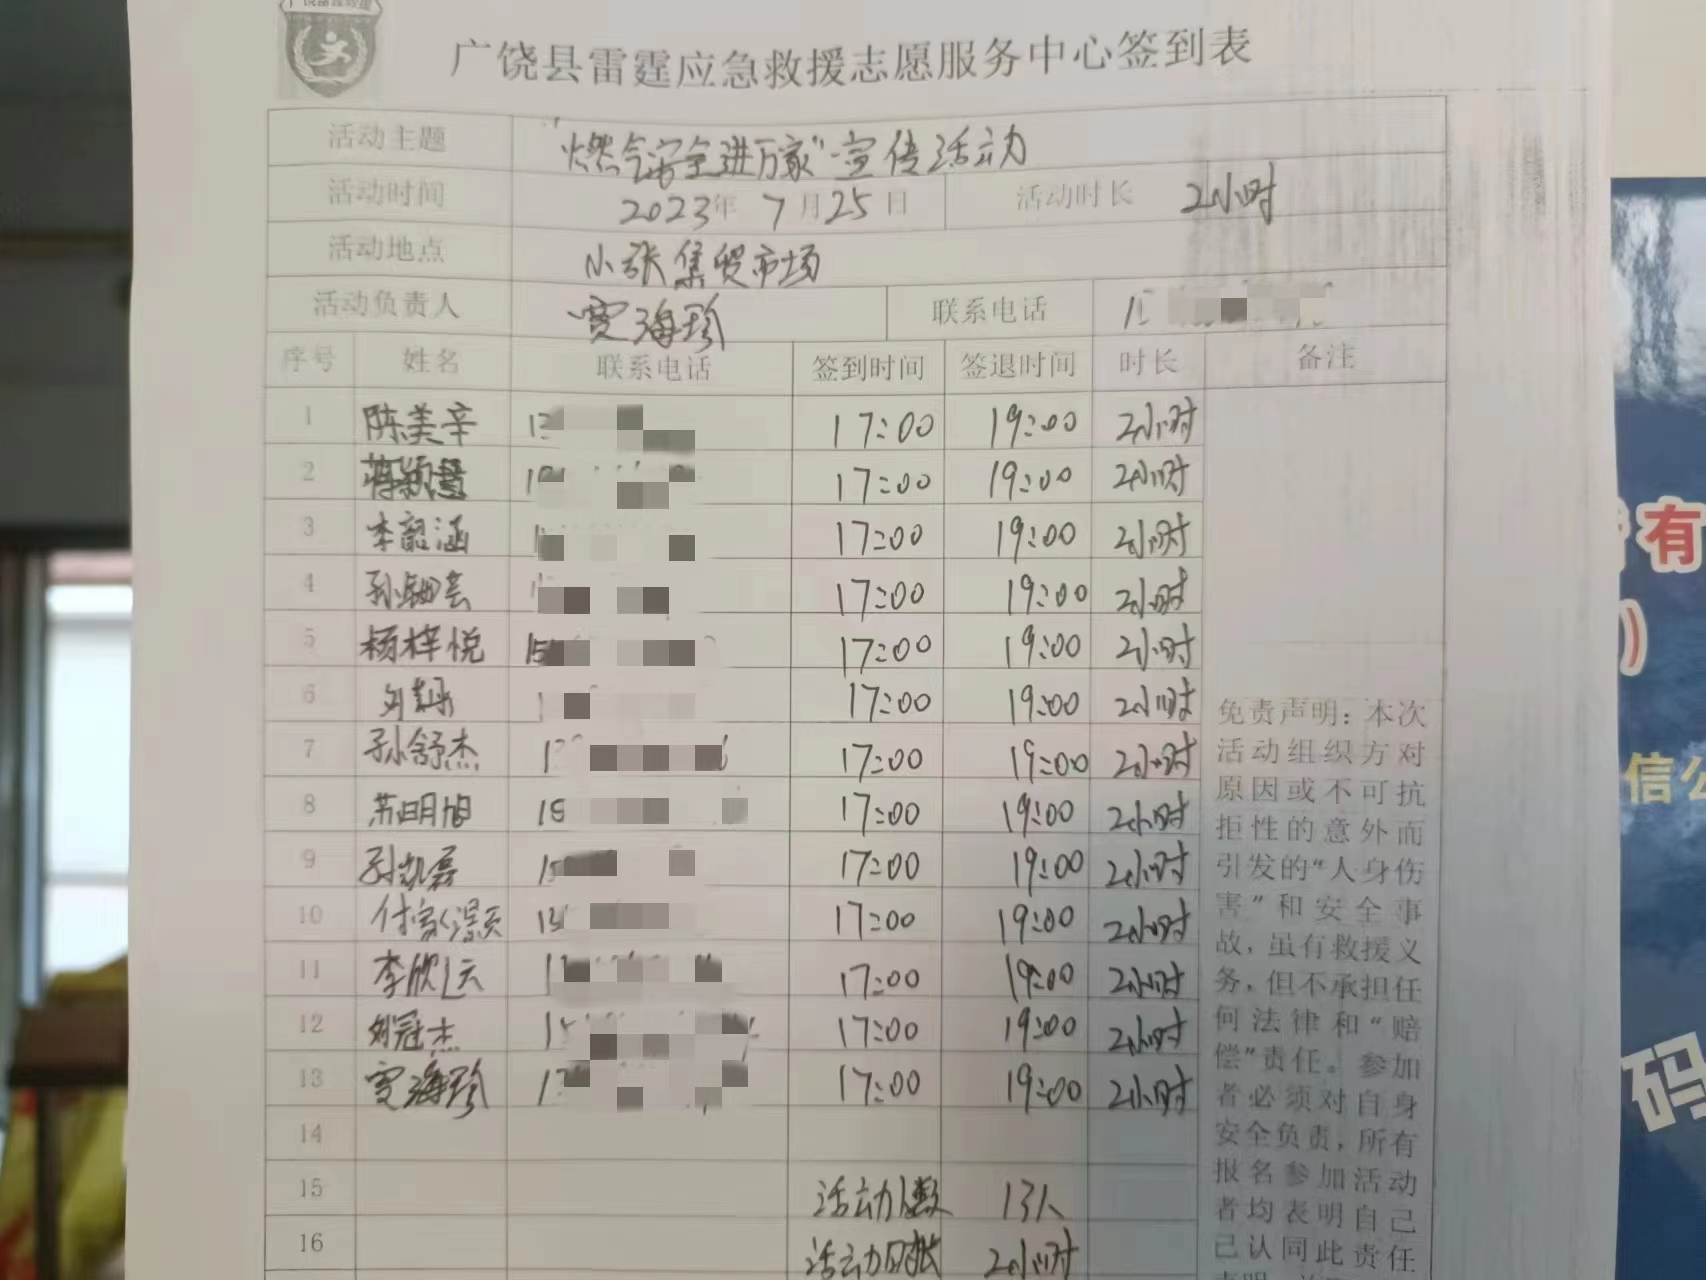 广饶县雷霆应急救援志愿服务中心签到表
活动主题 "燃气安全进万家"宣传活动
活动时间 2023年 7月25日 活动时长 2小时
活动地点 小张集贸市场
活动负责人 贾海珍 联系电话 15
序号 姓名 联系电话 签到时间 签退时间 时长 备注
1 陈美辛 13 17:00 19:00 2小时
2 蒋颖慧 17:00 19:00 2小时
3 李韶涵 17:00 19:00 2小时
4 孙 17:00 19:00 2小时
5 杨梓悦 150 17:00 19:00 2小时
6 刘 17:00 19:00 2小时
7 孙舒杰 17:00 19:00 2小时
8 苏明旭 17:00 19:00 2小时
9 孙凯磊 17:00 19:00 2小时
10 付家 17:00 19:00 2小时
11 李欣运 17:00 19:00 2小时
12 刘冠杰 17:00 19:00 2小时
13 贾海珍 17:00 19:00 2小时
14
15 活动人数 13人
16 活动时长 2小时
免责声明：本次
活动组织方对
原因或不可抗
拒性的意外而
引发的"人身伤
害"和安全事
故，虽有救援义
务，但不承担任
何法律和"赔
偿"责任。参加
者必须对自身
安全负责，所有
报名参加活动
者均表明自己
己认同此责任
有
信公
码